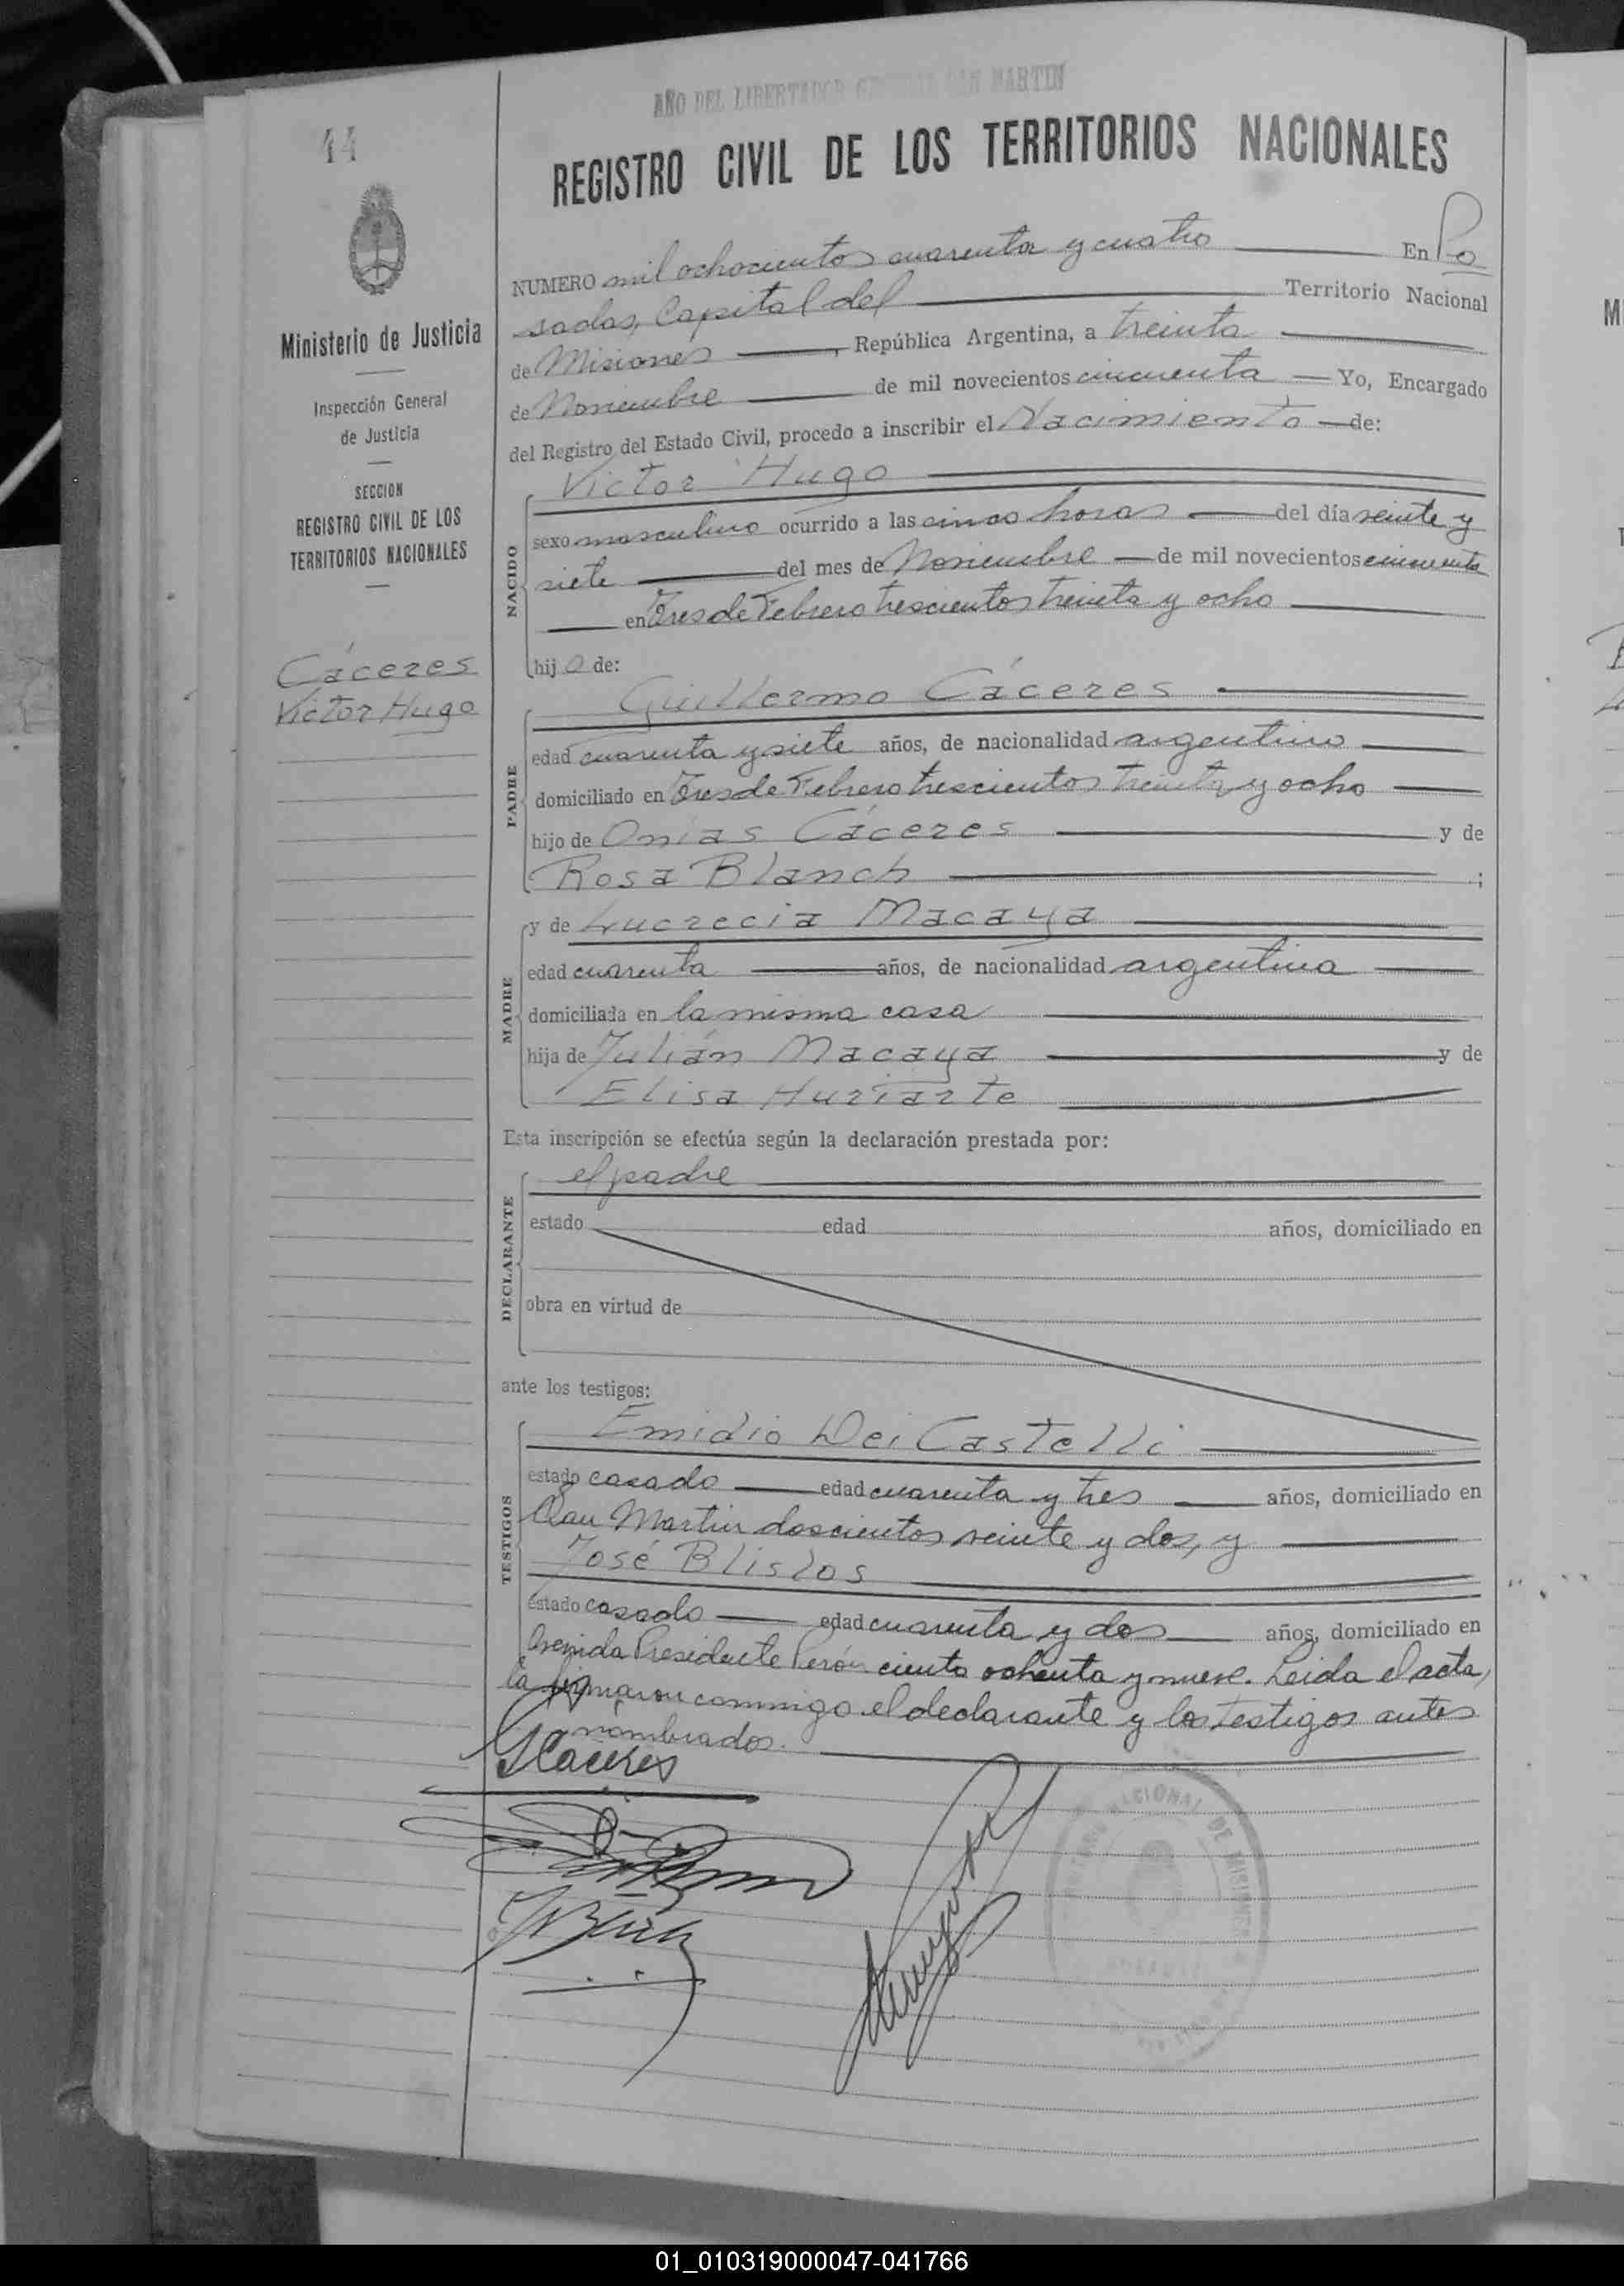 AÑO DEL LIBERTADOR GENERAL SAN MARTIN
44
REGISTRO CIVIL DE LOS TERRITORIOS NACIONALES
Ministerio de Justicia
Inspección General
de Justicia
SECCION
REGISTRO CIVIL DE LOS
TERRITORIOS NACIONALES
Cáceres
Victor Hugo
NUMERO mil ochocientos cuarenta y cuatro En Po
sadas, Capital del Territorio Nacional
de Misiones, República Argentina, a treinta
de Noviembre de mil novecientos cincuenta Yo, Encargado
del Registro del Estado Civil, procedo a inscribir el Nacimiento de:
Victor Hugo
NACIDO
sexo masculino ocurrido a las cinco horas del día veinte y
siete del mes de Noviembre de mil novecientos cincuenta
en Tres de Febrero trescientos treinta y ocho
hijo de:
Guillermo Cáceres
PADRE
edad cuarenta y siete años, de nacionalidad argentino
domiciliado en Tres de Febrero trescientos treinta y ocho
hijo de Onías Cáceres y de
Rosa Blanch ;
y de Lucrecia Macaya
MADRE
edad cuarenta años, de nacionalidad argentina
domiciliada en la misma casa
hija de Julián Macaya y de
Elisa Huriarte
Esta inscripción se efectúa según la declaración prestada por:
el padre
DECLARANTE
estado edad años, domiciliado en
obra en virtud de
ante los testigos:
Emidio Dei Castelli
TESTIGOS
estado casado edad cuarenta y tres años, domiciliado en
San Martin doscientos veinte y dos, y
José Blislos
estado casado edad cuarenta y dos años, domiciliado en
Avenida Presidente Perón ciento ochenta y nueve. Leida el acta,
la firmaron conmigo el declarante y los testigos antes
nombrados.
GCáceres
NACIONAL DE MISIONES
01_010319000047-041766